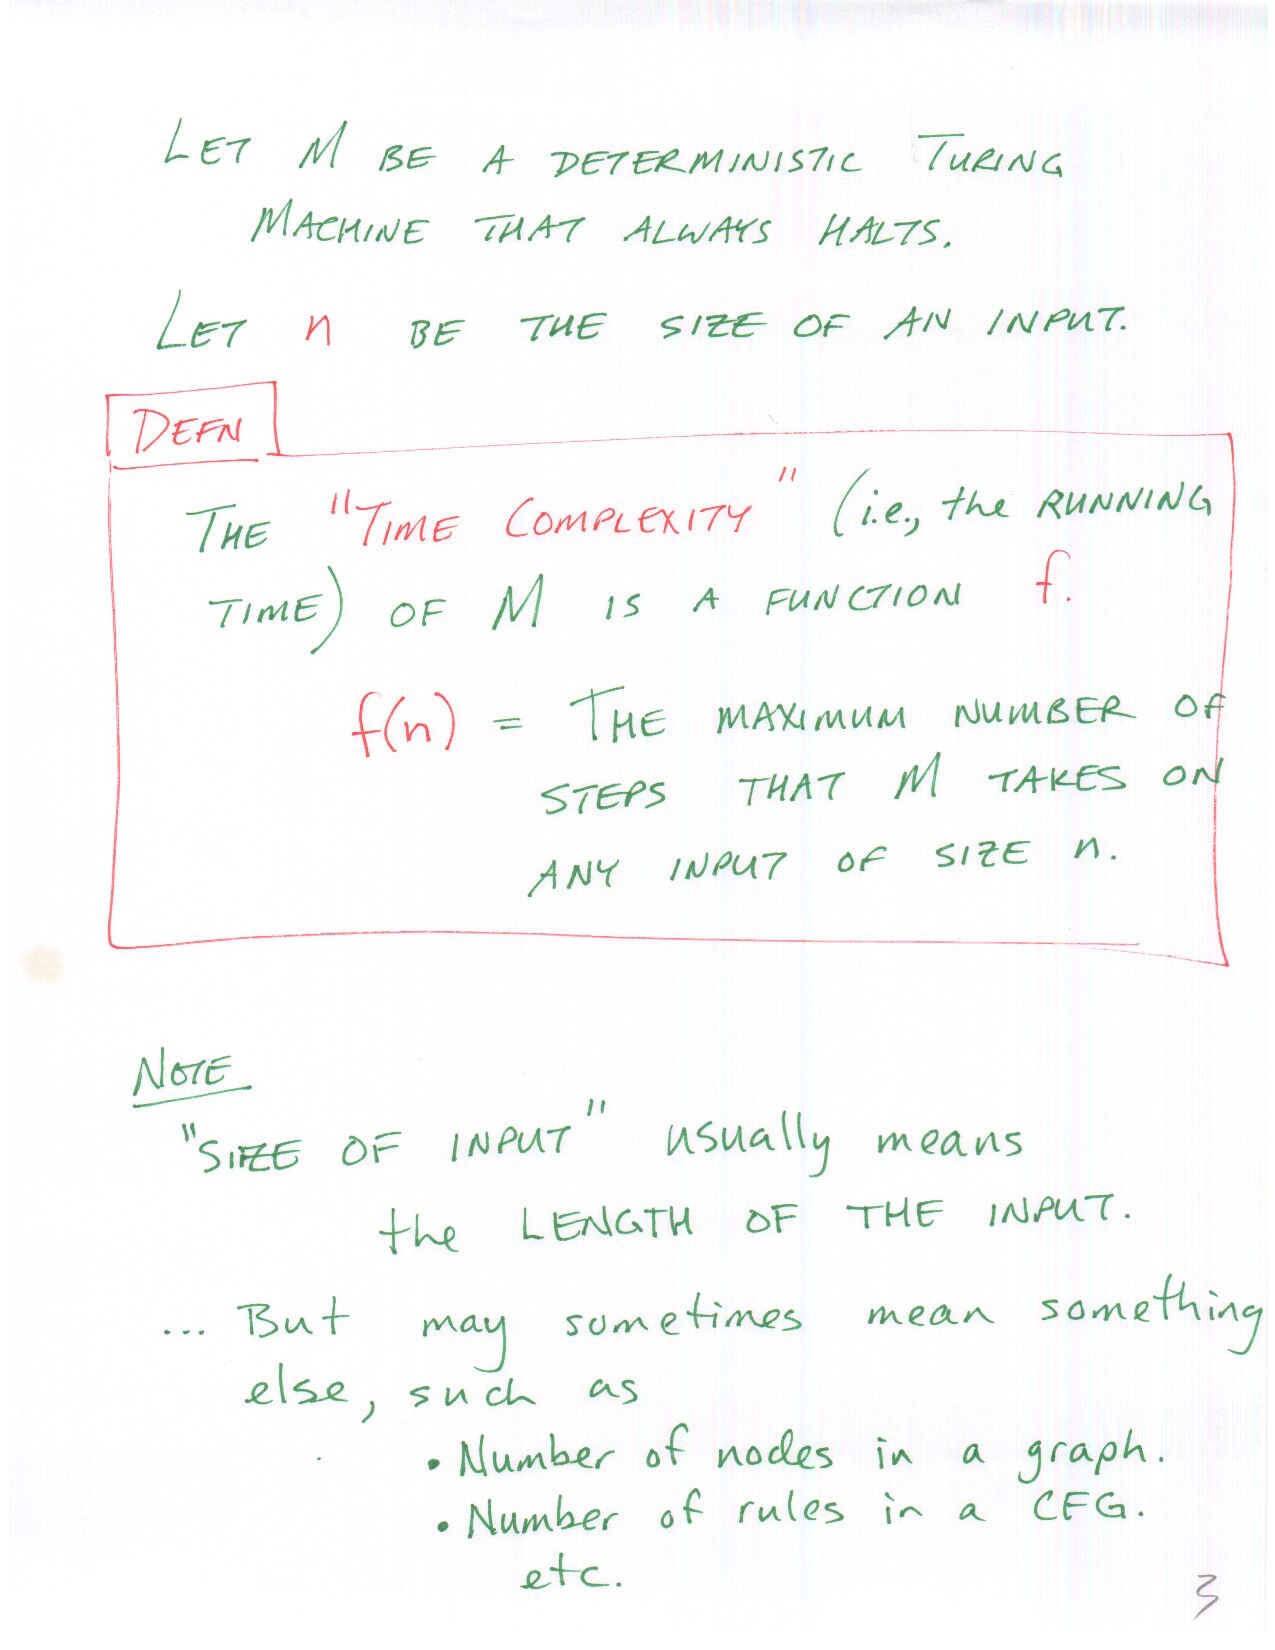 LET M BE A DETERMINISTIC TURING
MACHINE THAT ALWAYS HALTS.
LET n BE THE SIZE OF AN INPUT.
DEFN
THE "TIME COMPLEXITY" (i.e., the RUNNING
TIME) OF M IS A FUNCTION f.
f(n) = THE MAXIMUM NUMBER OF
STEPS THAT M TAKES ON
ANY INPUT OF SIZE n.
NOTE
"SIZE OF INPUT" usually means
the LENGTH OF THE INPUT.
... But may sometimes mean something
else, such as
• Number of nodes in a graph.
• Number of rules in a CFG.
etc.
3